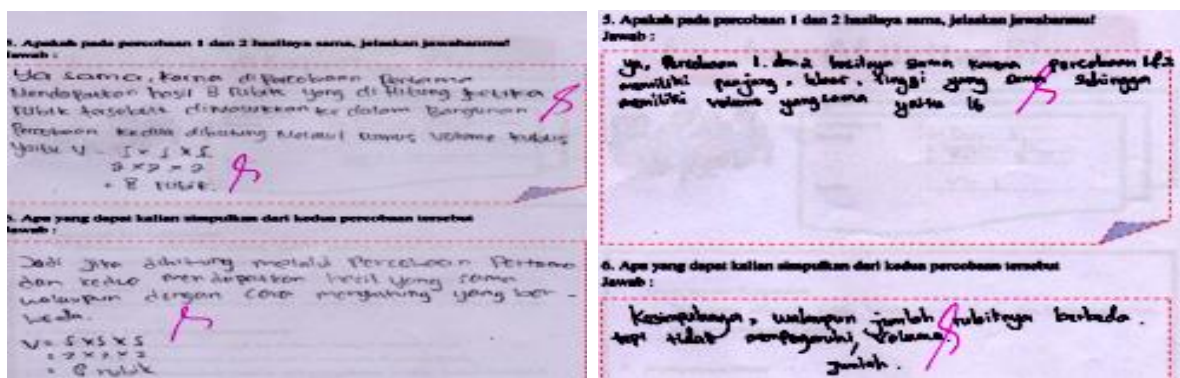 5. Apakah pada percobaan 1 dan 2 hasilnya sama, jelaskan jawabanmu!
Jawab :
Ya sama, karna di Percobaan Pertama
Mendapatkan hasil 8 Rubik yang di hitung ketika
Rubik tersebut dimasukkan ke dalam Bangunan
Percobaan kedua dihitung Melalui Rumus Volume kubus
Yaitu V = S × S × S
2 × 2 × 2
= 8 rubik.
6. Apa yang dapat kalian simpulkan dari kedua percobaan tersebut
Jawab :
Jadi jika dihitung melalui Percobaan Pertama
dan kedua mendapatkan hasil yang sama
walaupun dengan cara menghitung yang ber-
beda.
V = S × S × S
= 2 × 2 × 2
= 8 rubik
5. Apakah pada percobaan 1 dan 2 hasilnya sama, jelaskan jawabanmu!
Jawab :
Ya, Percobaan 1. dan 2 hasilnya sama karena percobaan 1&2
memiliki panjang, lebar, tinggi yang sama Sehingga
memiliki volume yang sama yaitu 16
6. Apa yang dapat kalian simpulkan dari kedua percobaan tersebut
Jawab :
Kesimpulannya, walaupun jumlah rubiknya berbeda.
tapi tidak mempengaruhi, volume.
jumlah.